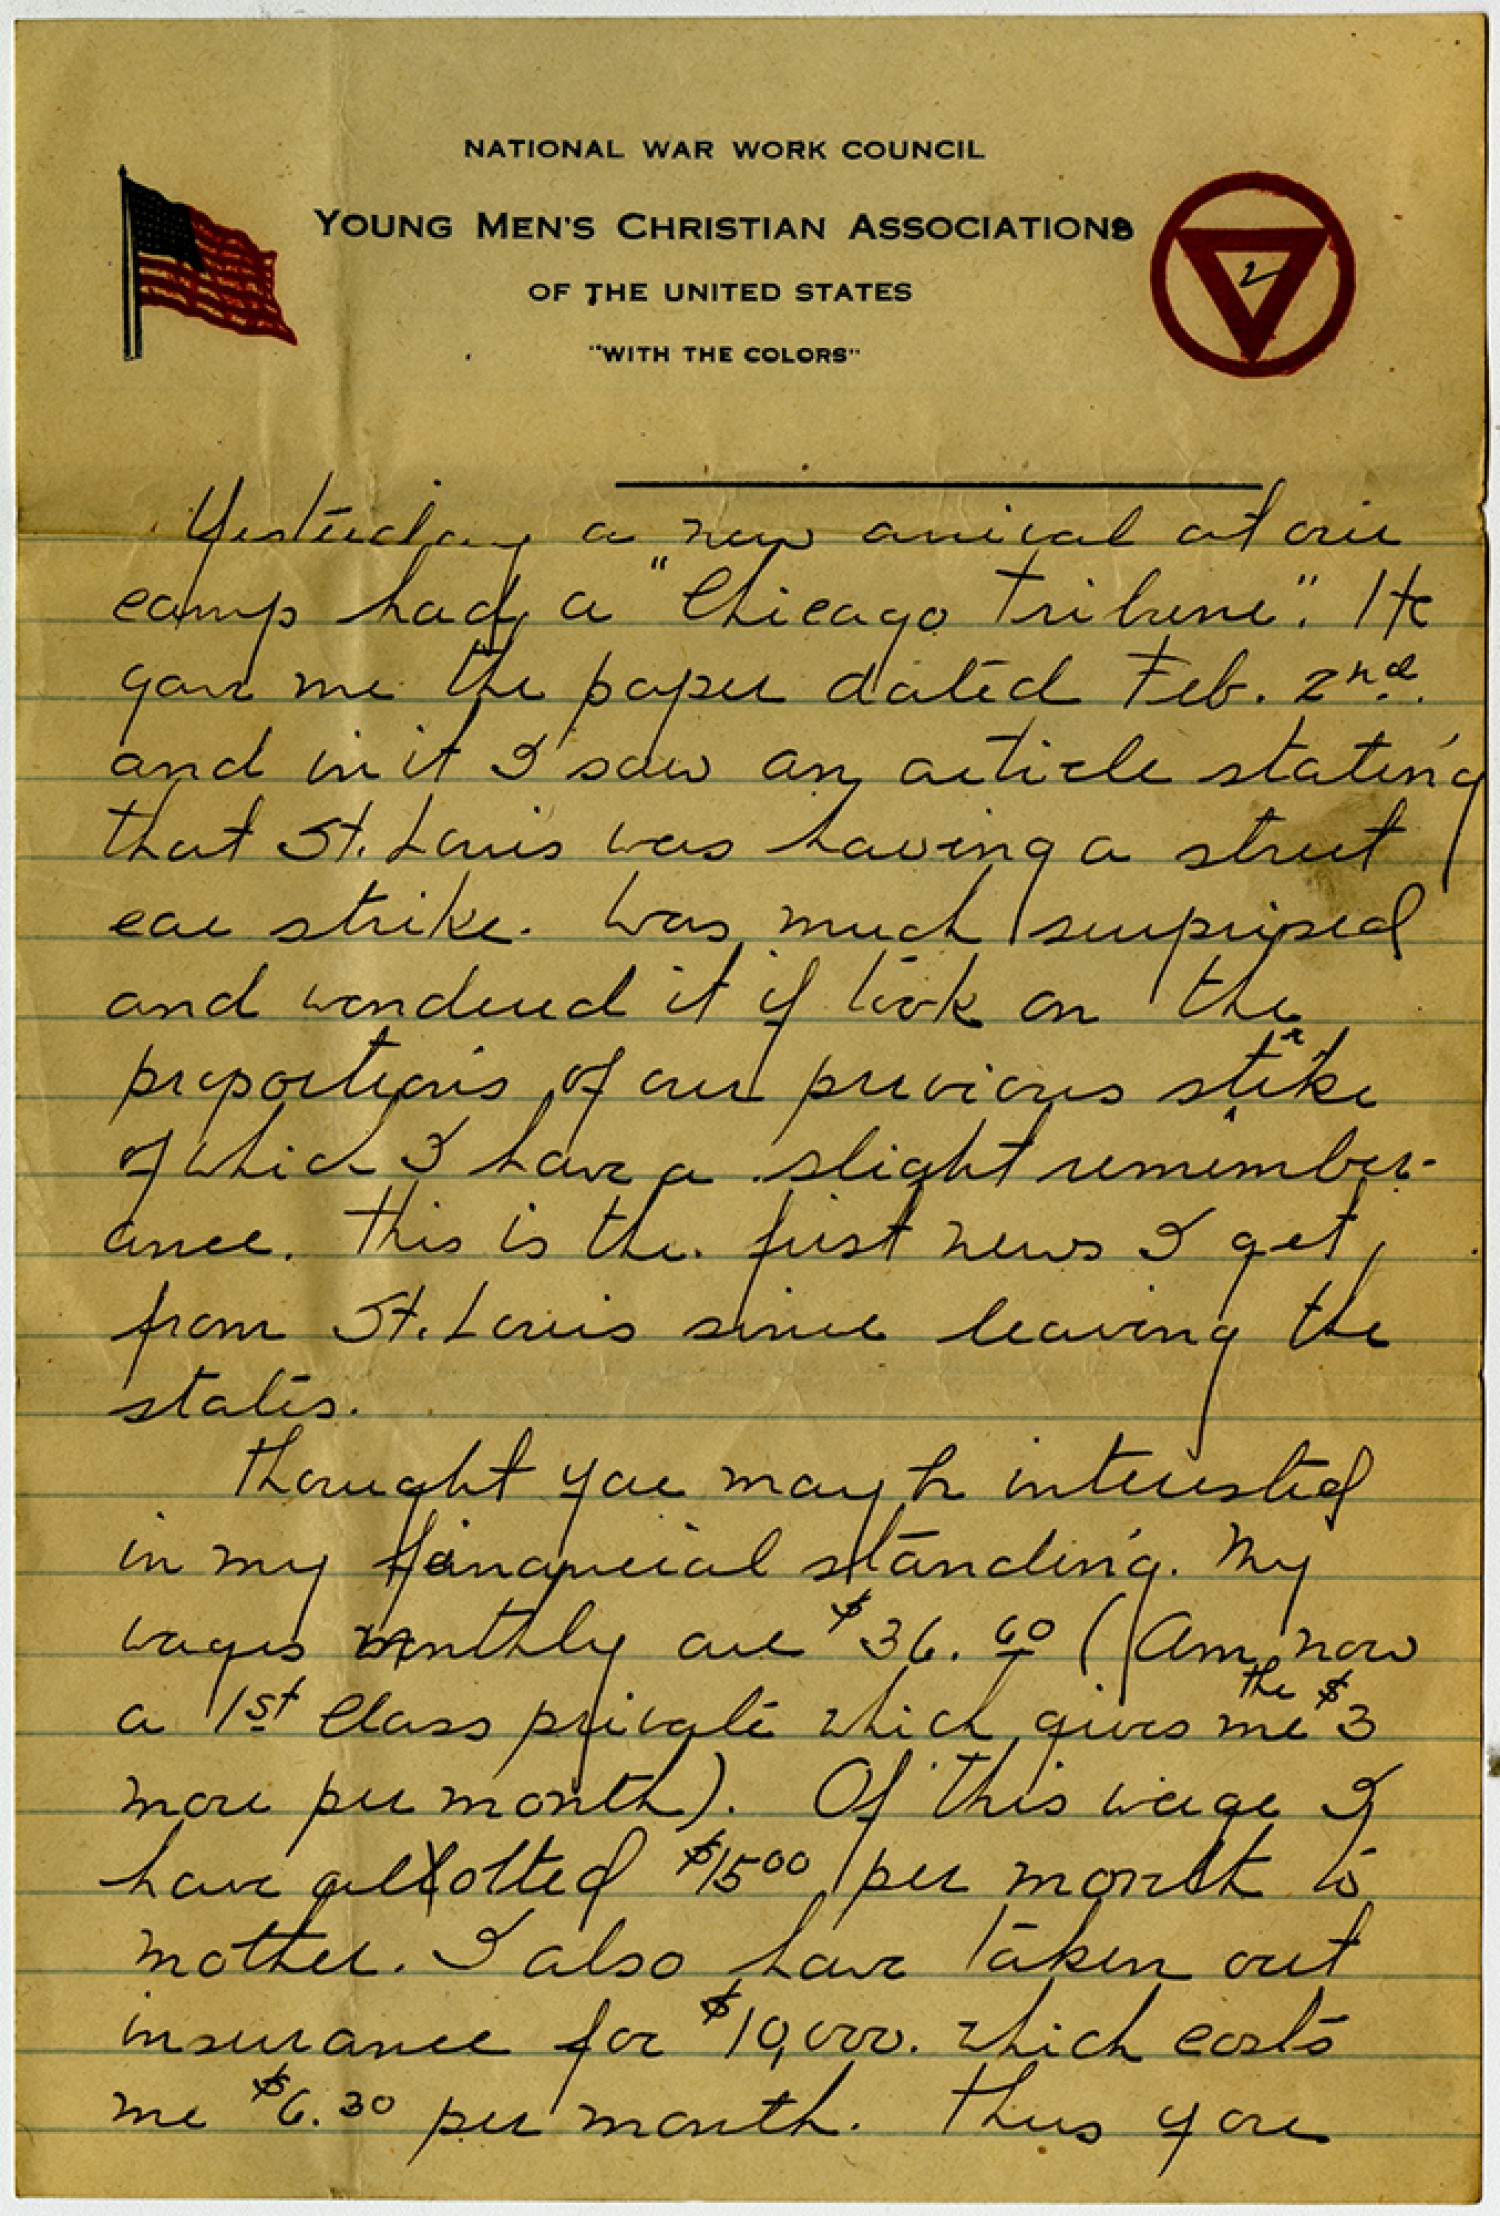 NATIONAL WAR WORK COUNCIL
YOUNG MEN'S CHRISTIAN ASSOCIATIONS
OF THE UNITED STATES
"WITH THE COLORS"
2
Yesterday a new arrival at our
camp had a "Chicago Tribune". He
gave me the paper dated Feb. 2nd.
and in it I saw an article stating
that St. Louis was having a street
car strike. Was much surprised
and wondered it if took on the
proportions of our previous strike
of which I have a slight remember-
ance. This is the first news I get
from St. Louis since leaving the
states.
Thought you may be interested
in my financial standing. My
wages monthly are $36.60 (Am now
a 1st Class private which gives me the $3
more per month). Of this wage I
have allotted $1500 per month to
mother. I also have taken out
insurance for $10,000. which costs
me $6.30 per month. Thus you